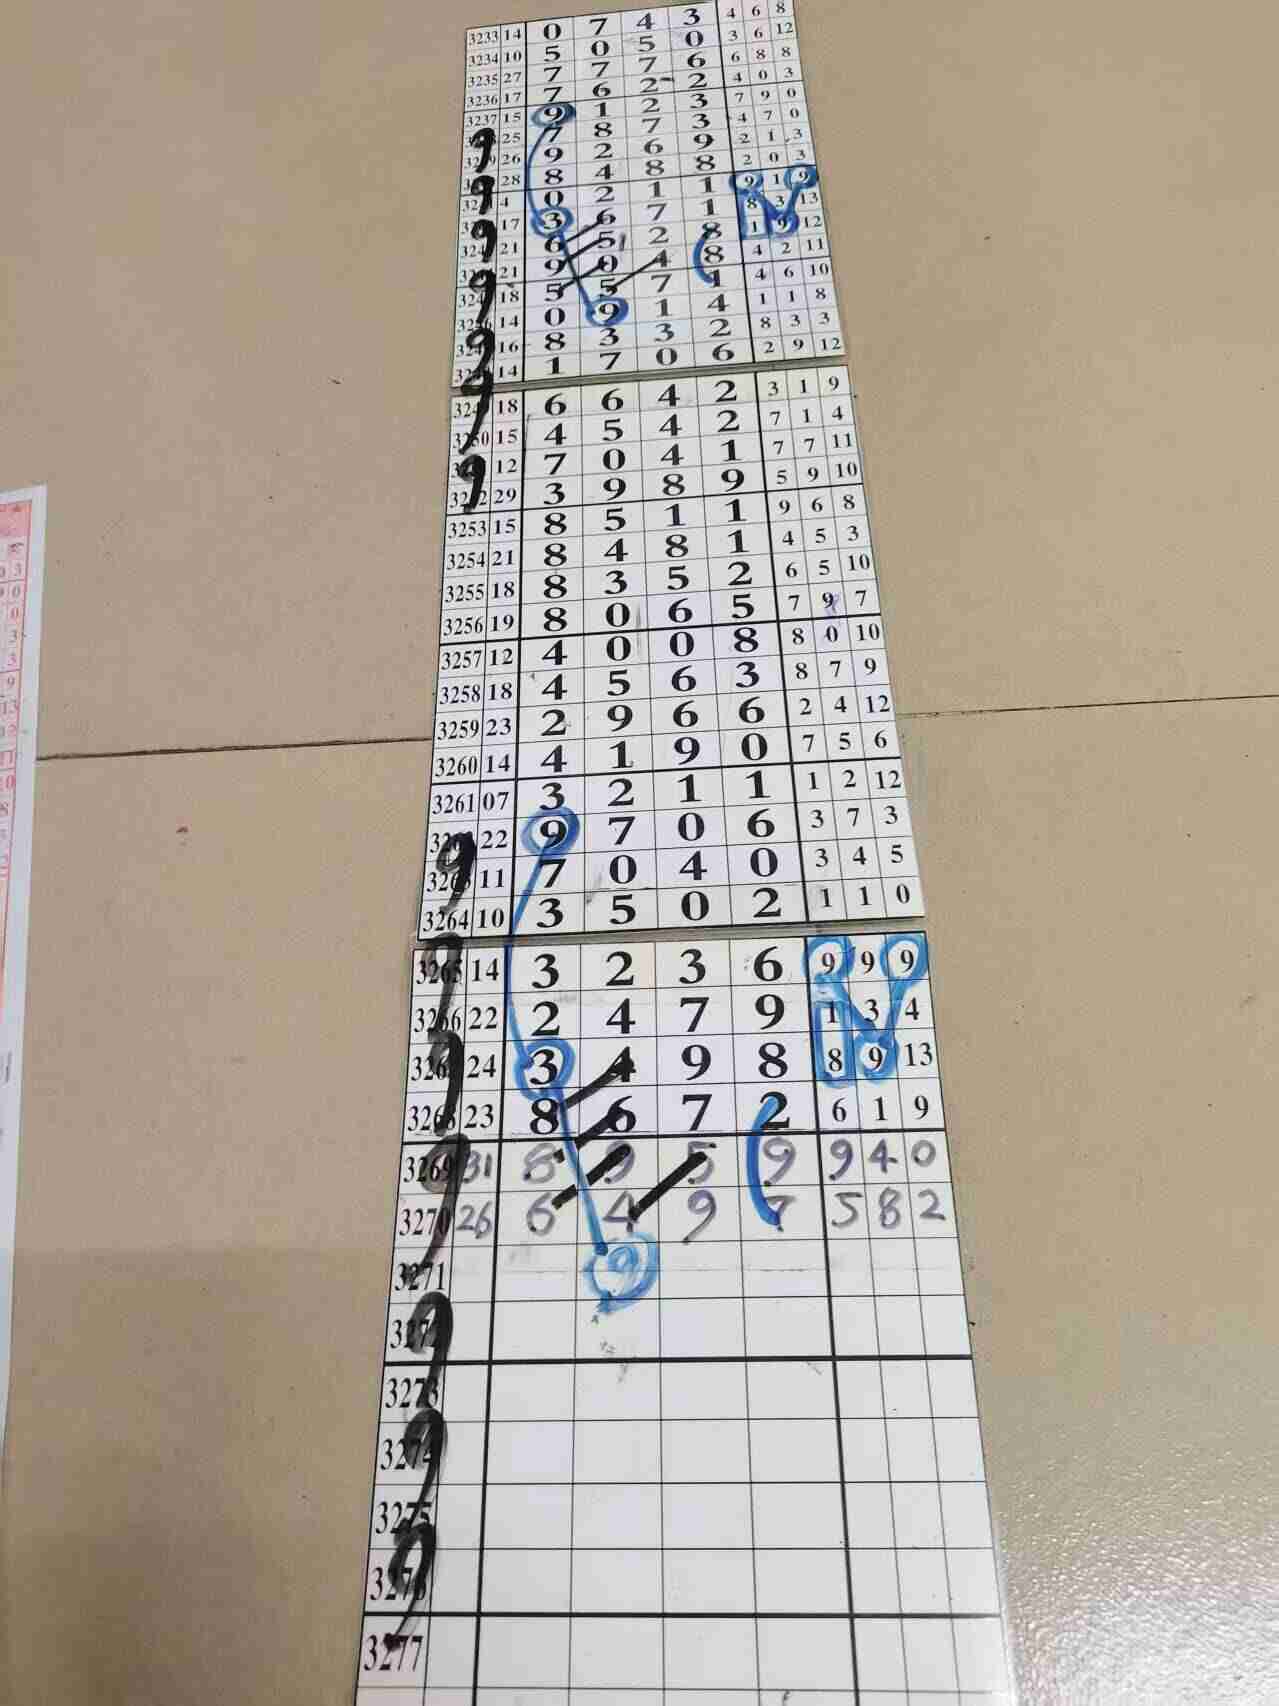 3233 14 0 7 4 3 4 6 8
3234 10 5 0 5 0 3 6 12
3235 27 7 7 7 6 6 8 8
3236 17 7 6 2 2 4 0 3
3237 15 9 1 2 3 7 9 0
25 7 8 7 3 4 7 0
26 9 2 6 9 2 1 3
28 8 4 8 8 2 0 3
4 0 2 1 1 9 1 9
17 3 6 7 1 8 3 13
21 6 5 2 8 1 9 12
21 9 0 4 8 4 2 11
18 5 5 7 1 4 6 10
14 0 9 1 4 1 1 8
16 8 3 3 2 8 3 3
14 1 7 0 6 2 9 12
3249 18 6 6 4 2 3 1 9
3250 15 4 5 4 2 7 1 4
12 7 0 4 1 7 7 11
3252 29 3 9 8 9 5 9 10
3253 15 8 5 1 1 9 6 8
3254 21 8 4 8 1 4 5 3
3255 18 8 3 5 2 6 5 10
3256 19 8 0 6 5 7 9 7
3257 12 4 0 0 8 8 0 10
3258 18 4 5 6 3 8 7 9
3259 23 2 9 6 6 2 4 12
3260 14 4 1 9 0 7 5 6
3261 07 3 2 1 1 1 2 12
3262 22 9 7 0 6 3 7 3
3263 11 7 0 4 0 3 4 5
3264 10 3 5 0 2 1 1 0
3265 14 3 2 3 6 9 9 9
3266 22 2 4 7 9 1 3 4
3267 24 3 4 9 8 8 9 13
3268 23 8 6 7 2 6 1 9
3269 31 8 9 5 9 9 4 0
3270 26 6 4 9 7 5 8 2
3271 9
3272
3273
3274
3275
3276
3277